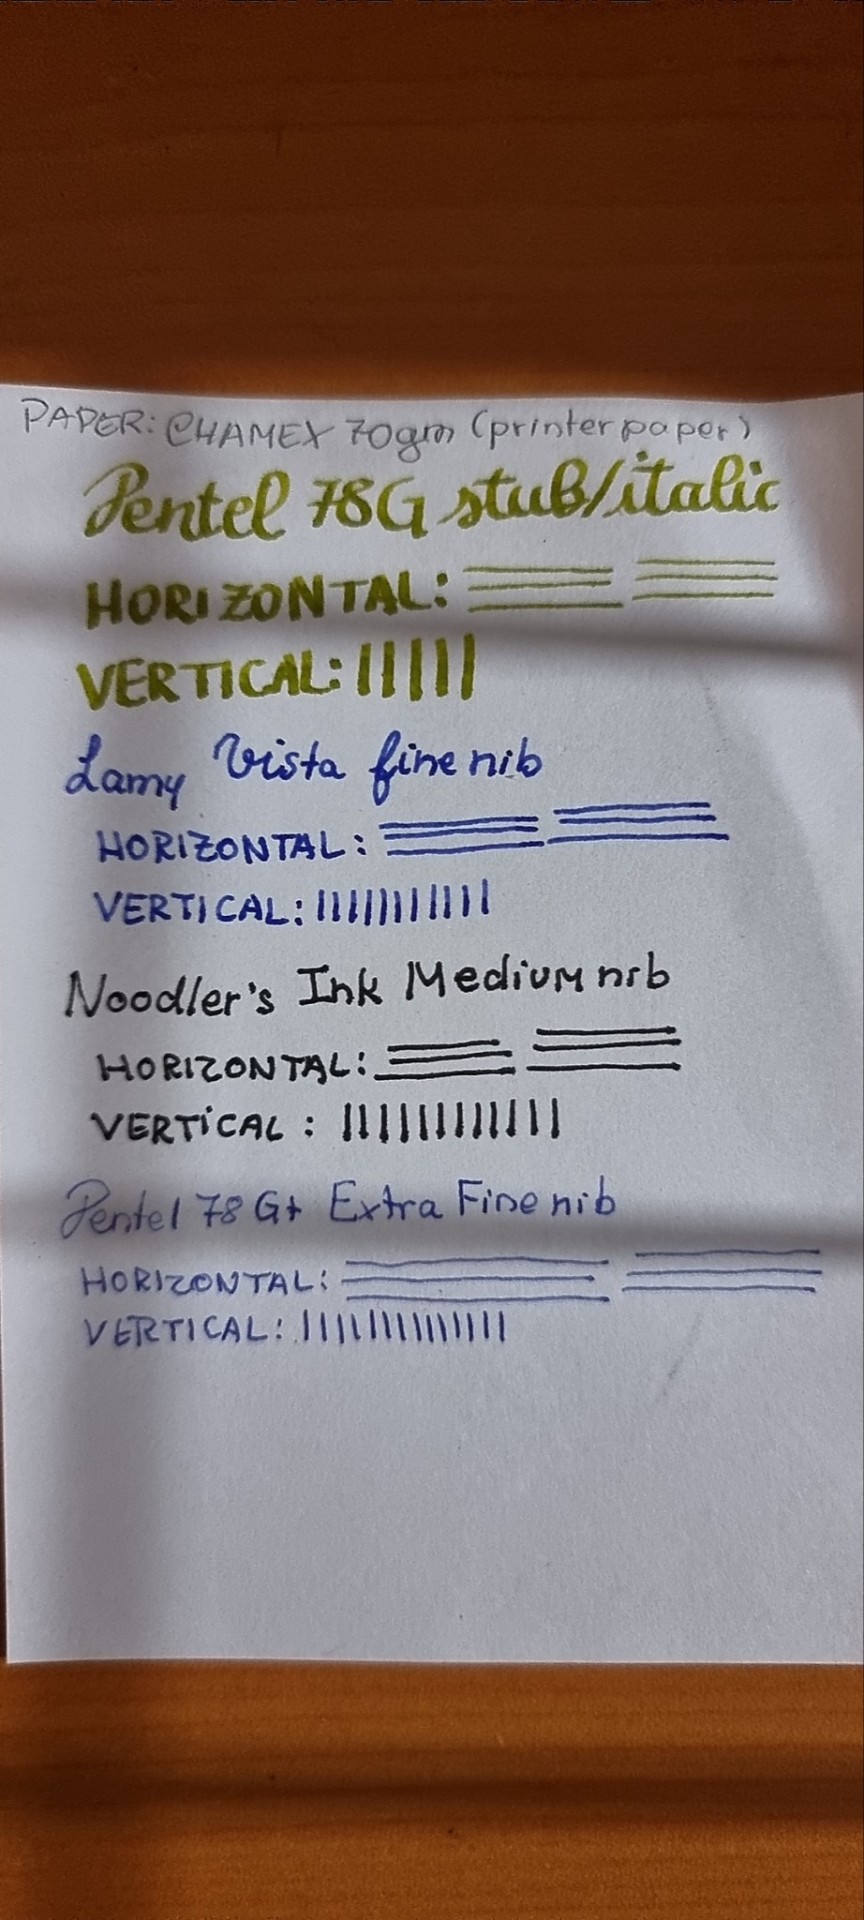 PAPER: CHAMEX 70gm (printer paper)
Pentel 78G stub/italic
HORIZONTAL:
VERTICAL:
Lamy Vista fine nib
HORIZONTAL:
VERTICAL:
Noodler's Ink Medium nib
HORIZONTAL:
VERTICAL:
Pentel 78G+ Extra Fine nib
HORIZONTAL:
VERTICAL: